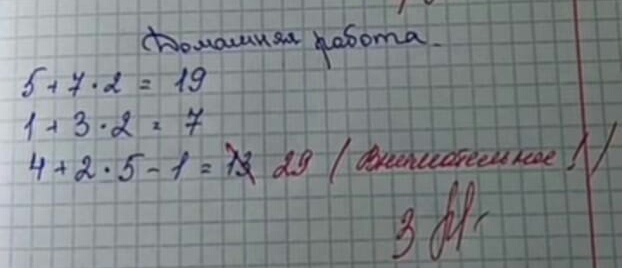 Домашняя работа.
5 + 7 · 2 = 19
1 + 3 · 2 = 7
4 + 2 · 5 - 1 = 13 29 (Внимательнее!)
3